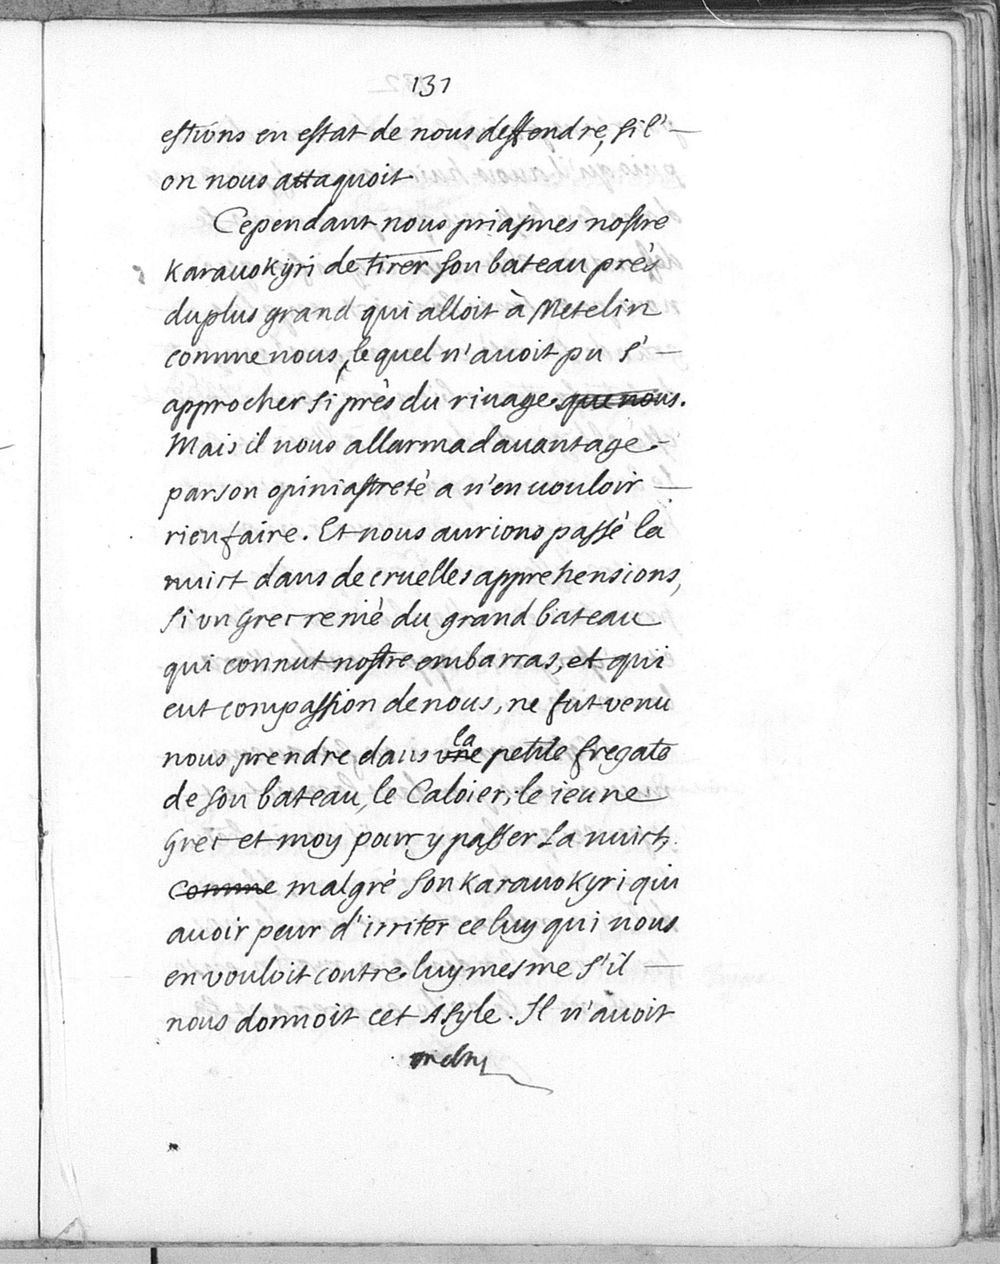 131
estions en estat de nous deffendre, si l'
on nous attaquoit.
Cependant nous priasmes nostre
Karavokyri de tirer son bateau près
du plus grand qui alloit à Metelin
comme nous, lequel n'avoit pu s'
approcher si près du rivage que nous.
Mais il nous allarma davantage
par son opiniastreté a n'en vouloir
rien faire. Et nous aurions passé la
nuict dans de cruelles apprehensions,
si un Grec renié du grand bateau
qui connut nostre embarras, et qui
eut compassion de nous, ne fut venu
nous prendre dans une la petite fregate
de son bateau, le Caloier, le ieune
Grec et moy pour y passer la nuict,
comme malgré son Karavokyri qui
avoir peur d'irriter celuy qui nous
en vouloit contre luy mesme s'il
nous donnoit cet Asyle. Il n'avoit